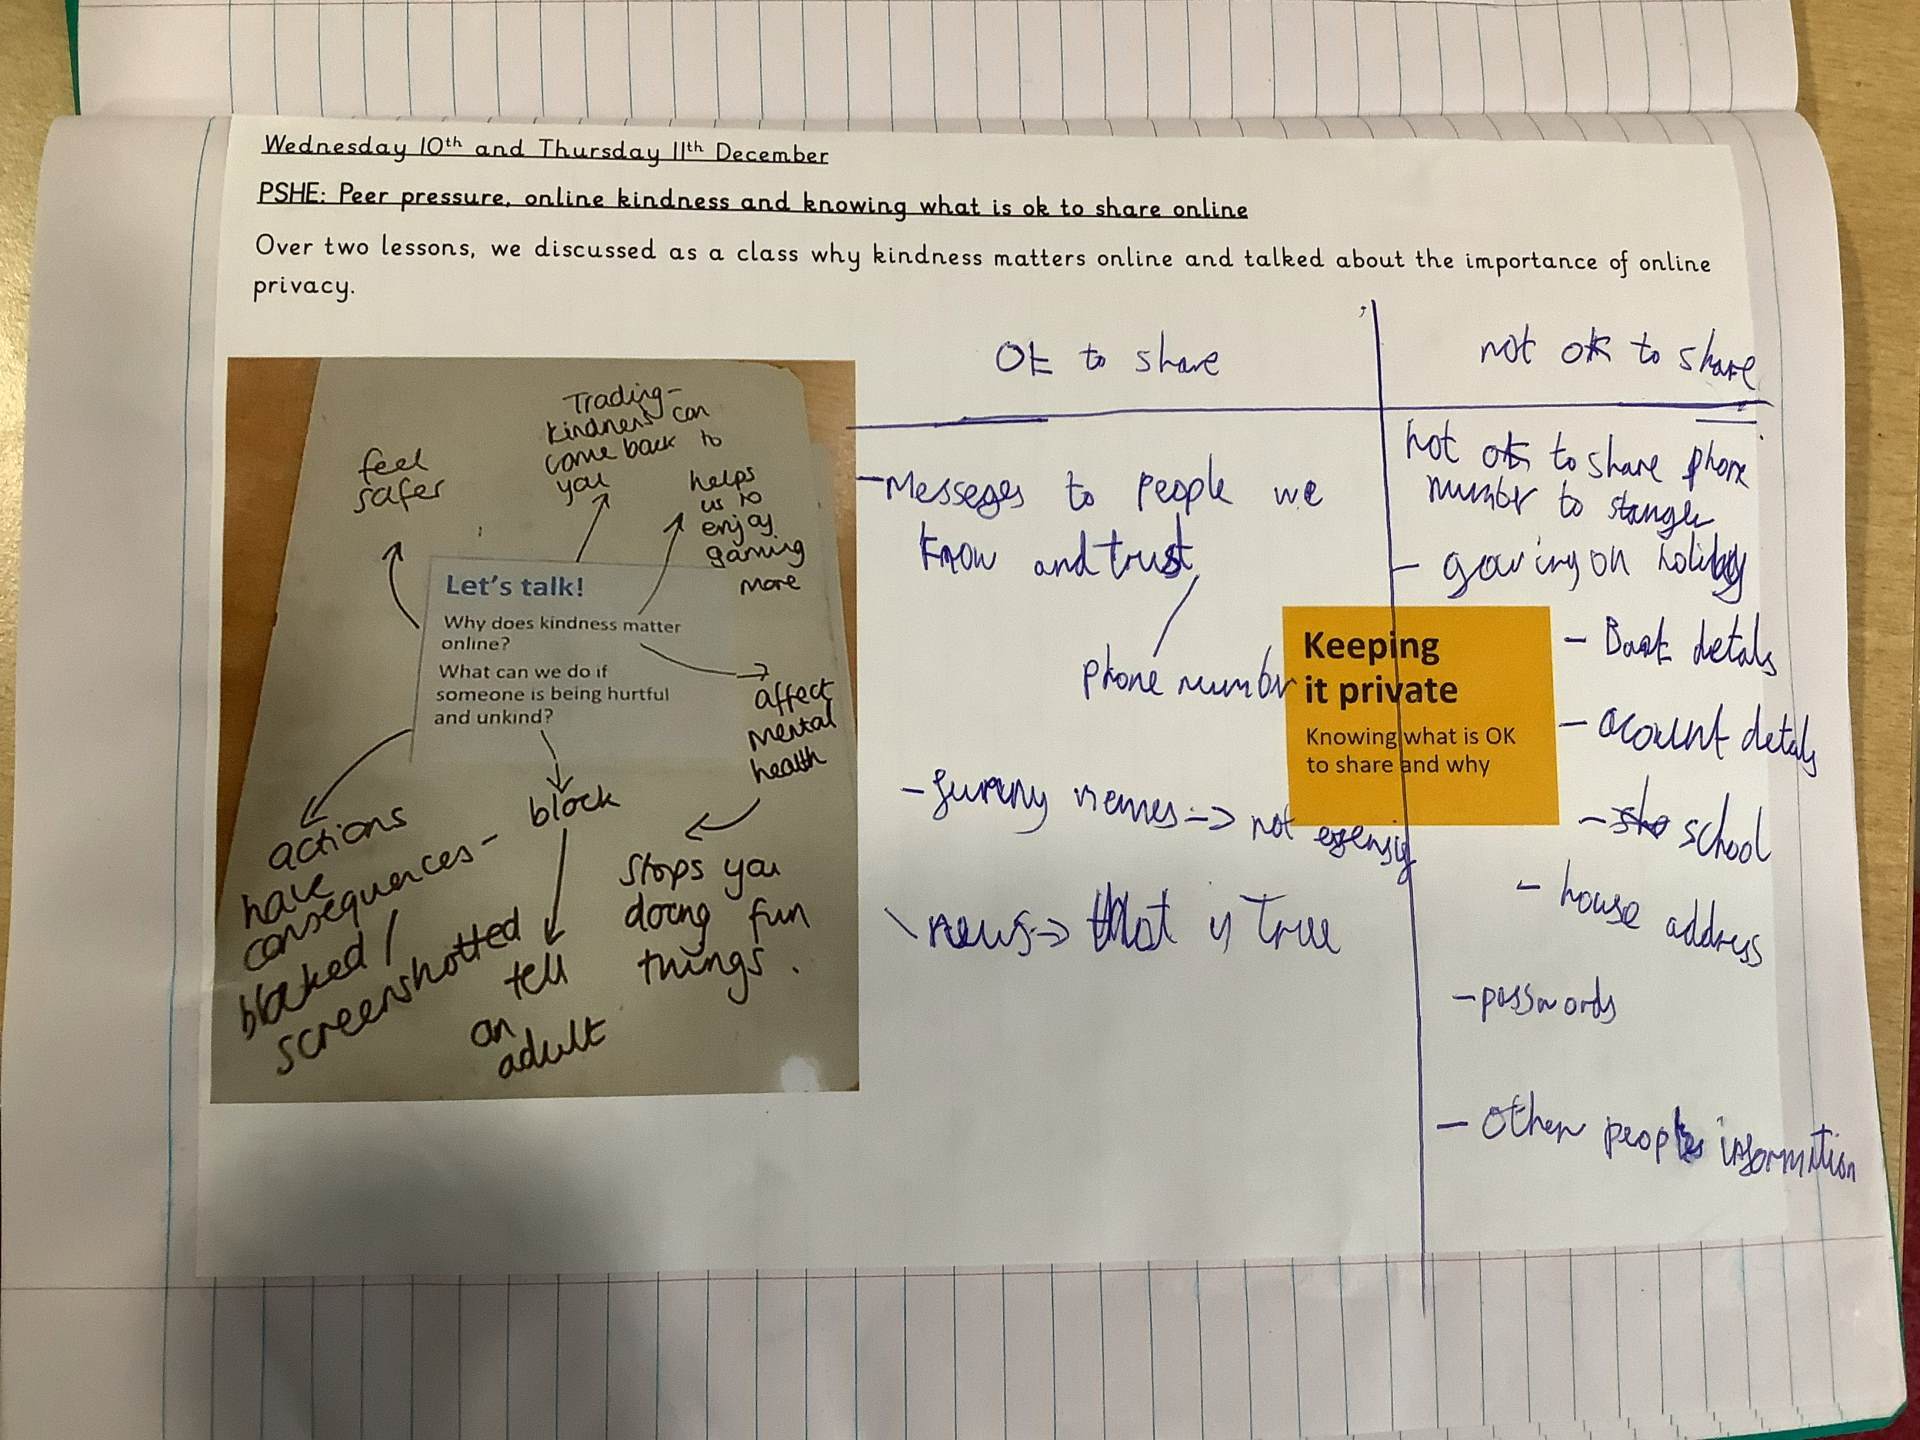 Wednesday 10th and Thursday 11th December
PSHE: Peer pressure, online kindness and knowing what is ok to share online
Over two lessons, we discussed as a class why kindness matters online and talked about the importance of online
privacy.
feel
safer
Trading-
kindness can
come back to
you
helps
us to
enjoy
gaming
more
Let's talk!
Why does kindness matter
online?
What can we do if
someone is being hurtful
and unkind?
affect
mental
health
stops you
doing fun
things.
block
tell
an
adult
actions
have
consequences-
blocked /
screenshotted
Ok to share
- Messeges to people we
know and trust
phone number
- funny memes ->
not
news -> that is True
Keeping
it private
Knowing what is OK
to share and why
not ok to share
not ok to share phone
number to
- on
- detals
- acount detals
- school
- house address
- passwords
- Other information